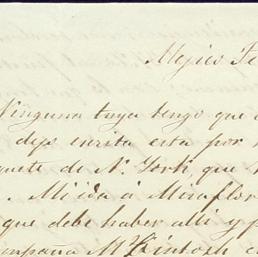 Mejico Fe
Ninguna tuya tengo que
dejo escrita esta por
quete de N. York, que
Mi ida à Miraflor
que debe haber alli y p
mpaña McKintosh